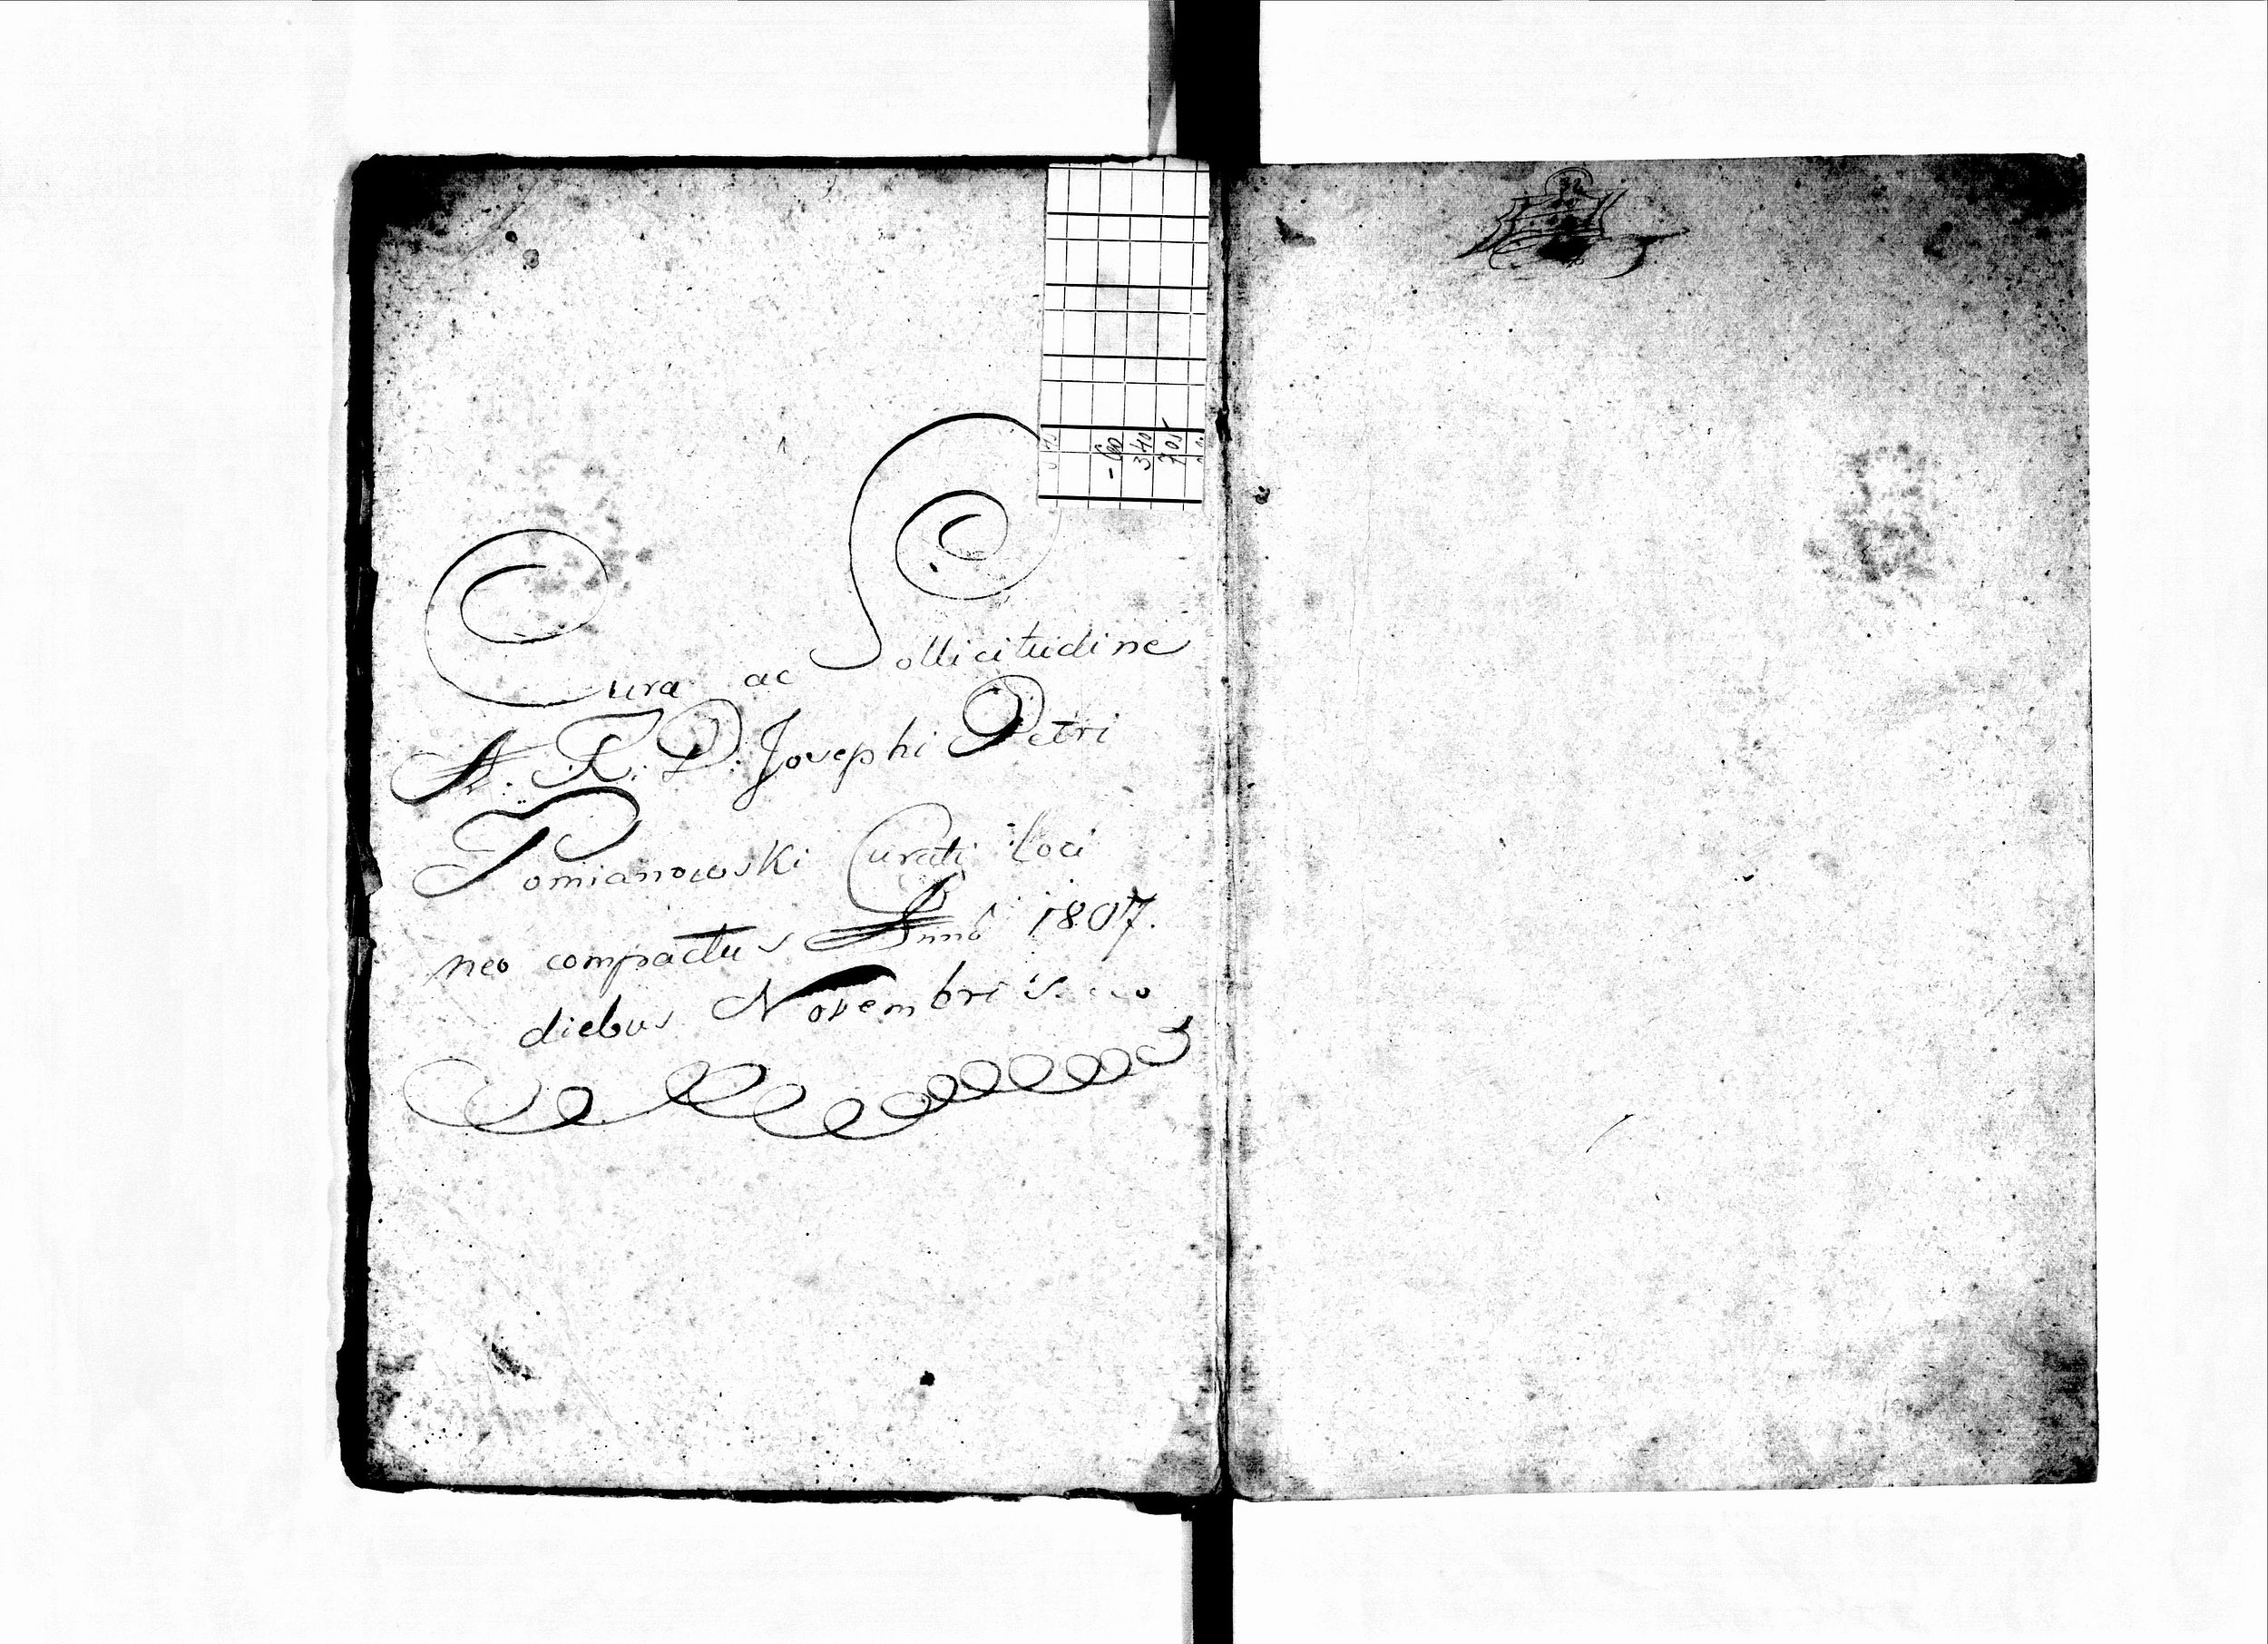 Cura ac Sollicitudine
A. R. D. Josephi Petri
Pomianowski Curati Loci
neo compactus Anno 1807.
diebus Novembris
340
705